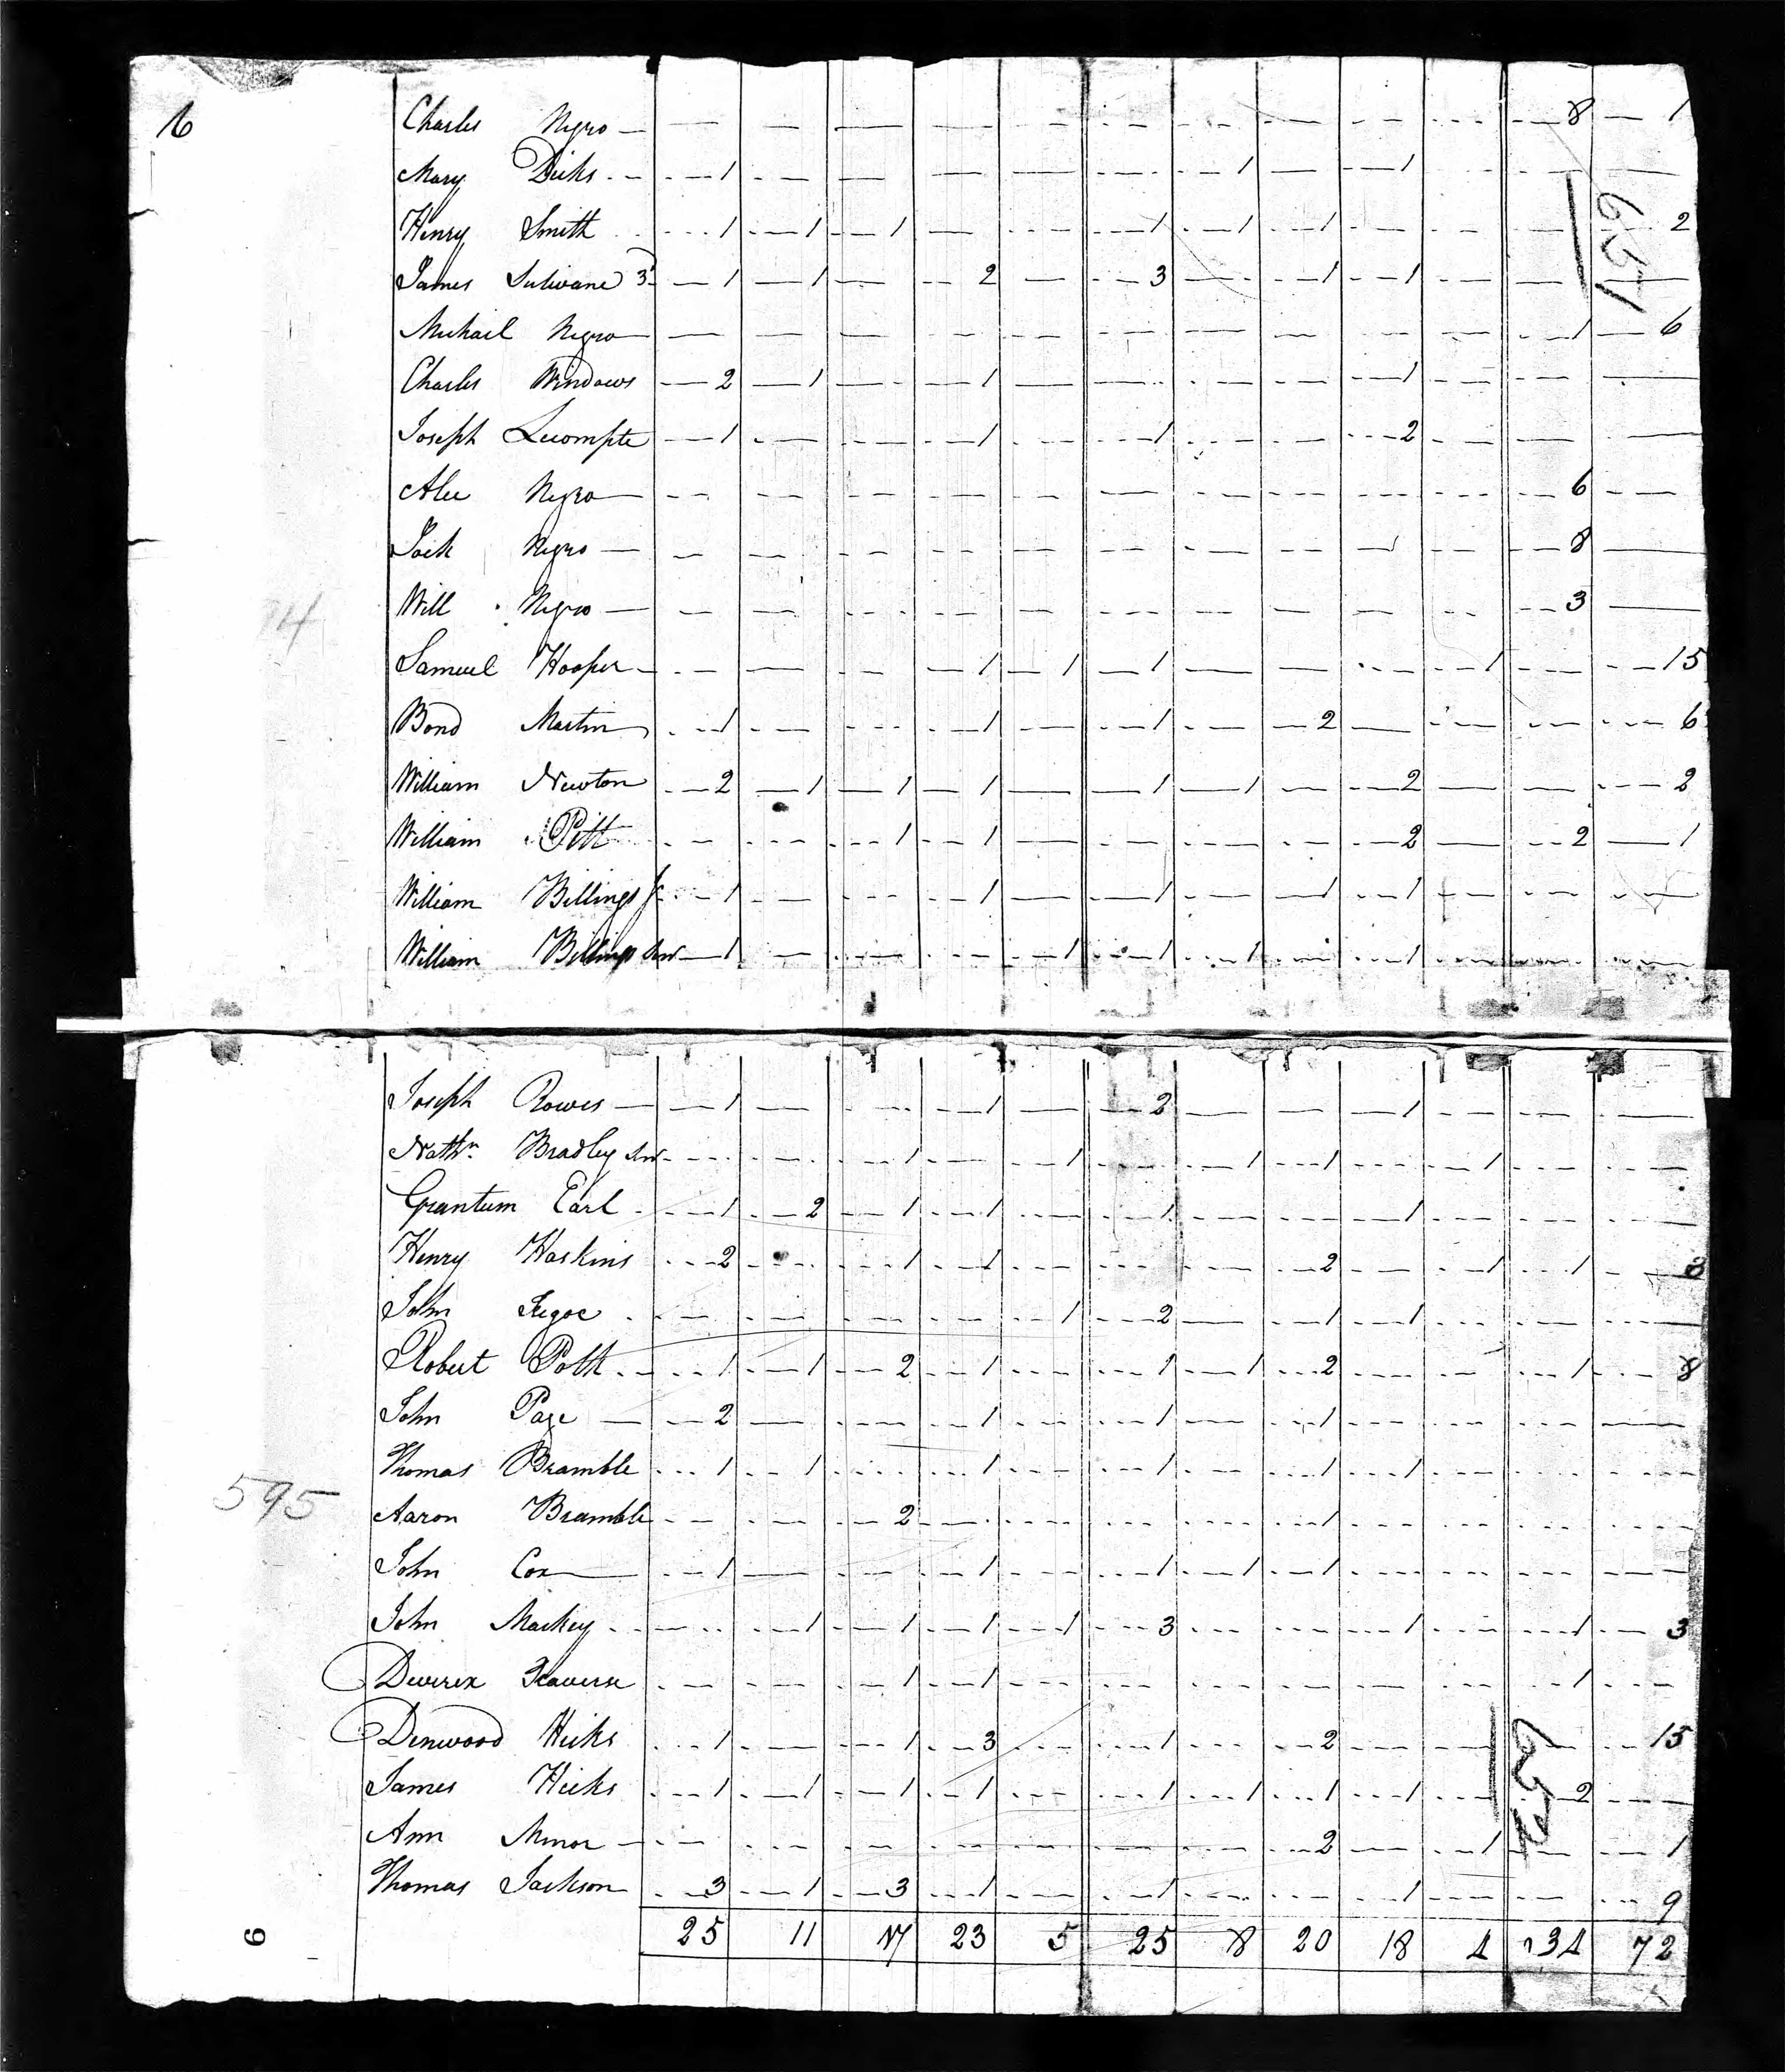 6
Charles Negro — — — — — — — — — — — 8 1
Mary Dicks 1 — — — — — 1 — 1 — — —
Henry Smith 1 1 1 — — 1 1 1 — — — 2
651
James Sulivane 3d 1 1 — 2 — 3 — 1 1 — — —
Michail Negro — — — — — — — — — — 1 6
Charles Windows 2 1 — 1 — — — — 1 — — —
Joseph Lecompte 1 — — 1 — 1 — — 2 — — —
Alec Negro — — — — — — — — — — 6 —
Jack Negro — — — — — — — — — — 8 —
Will Negro — — — — — — — — — — 3 —
Samuel Hooper — — — 1 1 1 — — — 1 — 15
Bond Martin 1 — — 1 — 1 — 2 — — — 6
William Newton 2 1 1 1 — 1 1 — 2 — — 2
William Pitt — — 1 1 — — — — 2 — 2 1
William Billings Jr 1 — — 1 — 1 — 1 1 — — —
William Billings Snr 1 — — — 1 1 1 — 1 — — —
Joseph Rowes 1 — — 1 — 2 — — 1 — — —
Nathn Bradley Snr — — 1 — 1 — 1 1 — 1 — —
Grantum Earl 1 2 1 1 — 1 — — 1 — — —
Henry Haskins 2 — 1 1 — — — 2 — 1 1 8
John Tregoe — — — — 1 2 — 1 1 — — —
Robert Polk 1 1 2 1 — 1 1 2 — — 1 8
John Page 2 — — 1 — 1 — 1 — — — —
Thomas Bramble 1 1 — 1 — 1 — 1 1 — — —
595
Aaron Bramble — — 2 — — — — 1 — — — —
John Cox 1 — — 1 — 1 1 1 — — — —
John Mackey — 1 1 1 1 3 — — 1 — 1 3
Deverex Traverse — — 1 1 — — — — — — 1 —
Denwood Hicks 1 — 1 3 — 1 — 2 — — — 15
James Hicks 1 1 1 1 — 1 1 1 1 — 2 —
Ann Minor — — — — — — — 2 — 1 — 1
Thomas Jackson 3 1 3 1 — 1 — — 1 — — 9
6
25 11 17 23 5 25 8 20 18 4 34 72